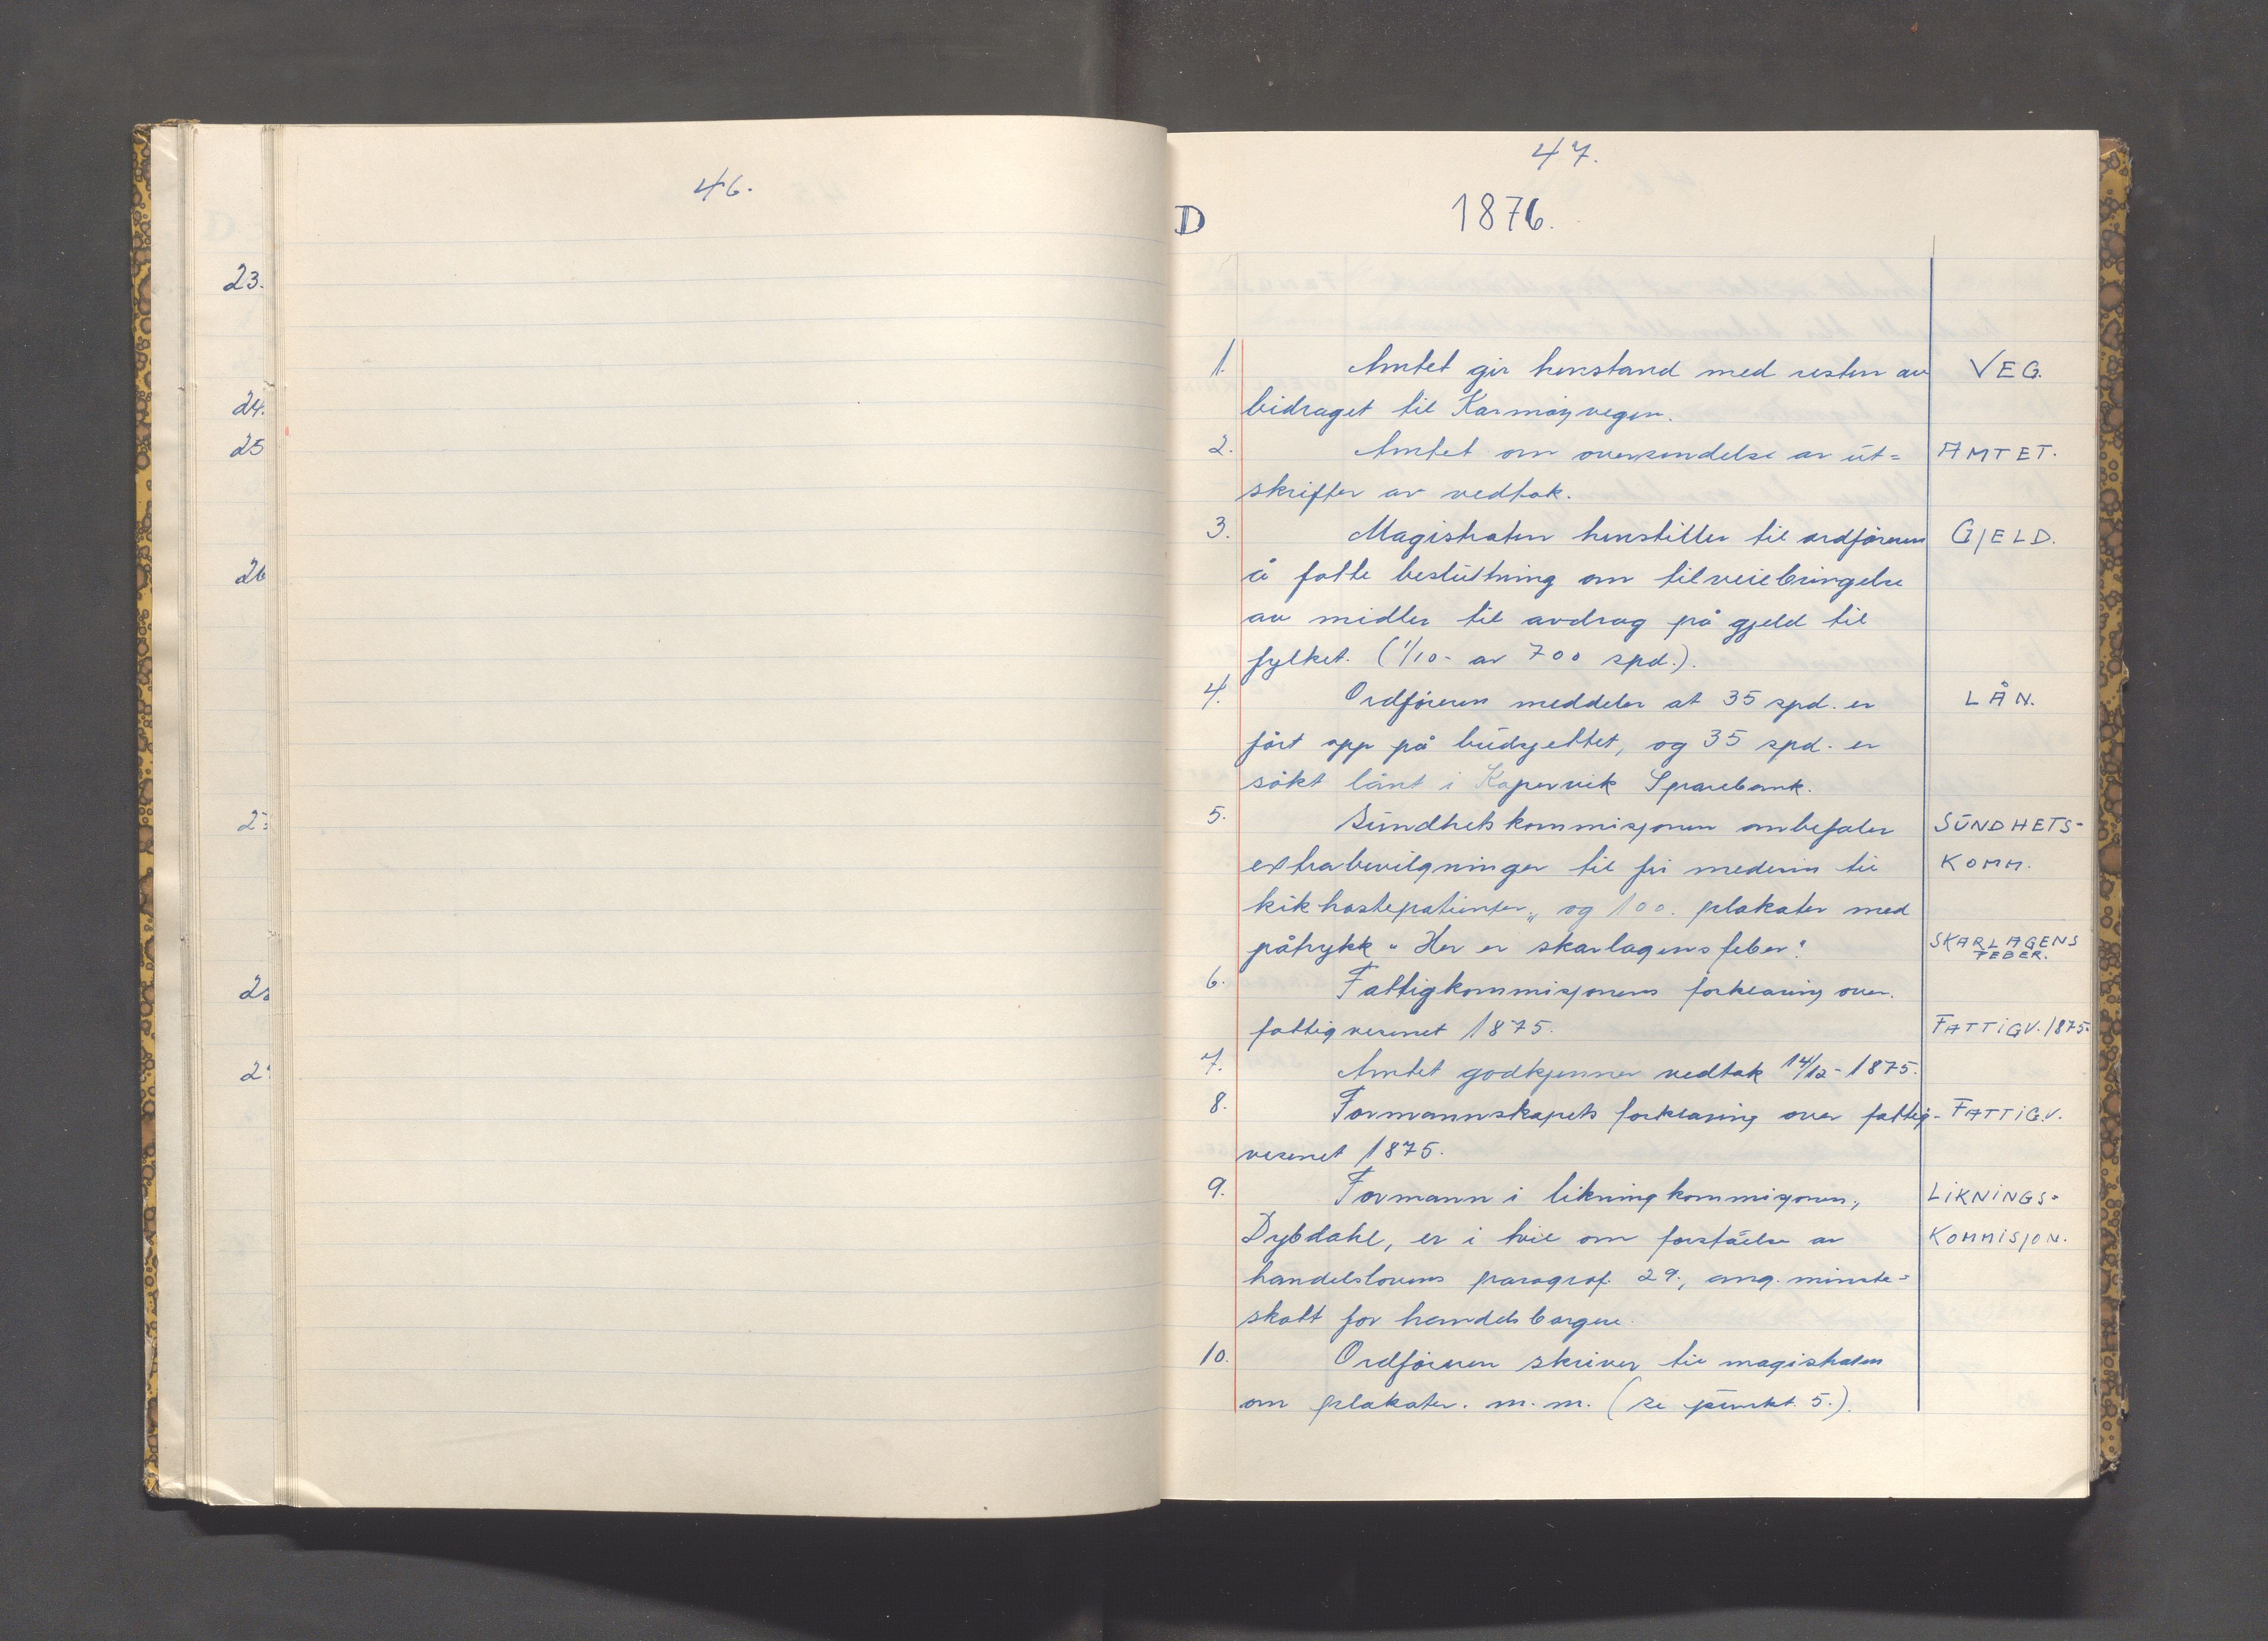 46.
23.
24.
25
26
47.
D
1876.
1. Amtet gir henstand med resten av VEG.
bidraget til Karmøyvegen.
2. Amtet om oversendelse av ut= AMTET.
skrifter av vedtak.
3. Magistraten henstiller til ordføreren GJELD.
å fatte beslutning om tilveiebringelse
av midler til avdrag på gjeld til
fylket. (1/10- av 700 spd.).
4. Ordføreren meddeler at 35 spd. er LÅN.
ført opp på budsjettet, og 35 spd. er
søkt lånt i Kopervik Sparebank.
5. Sundhetskommisjonen anbefaler SUNDHETS-
extrabevilgninger til fri medisin til KOMM.
kikhostepatienter, og 100. plakater med
påtrykk "Her er skarlagensfeber". SKARLAGENS
FEBER.
6. Fattigkommisjonens forklaring over.
fattigvesenet 1875. FATTIGV. 1875.
7. Amtet godkjenner vedtak 14/12-1875.
8. Formannskapets forklaring over fattig- FATTIGV.
vesenet 1875.
9. Formann i likningkommisjonen, LIKNINGS=
Dybdahl, er i tvil om forståelse av KOMMISJON.
handelslovens paragraf. 29., ang. minste=
skatt for handelsborgere.
10. Ordføreren skriver til magistraten
om plakater. m.m. (se punkt. 5.).